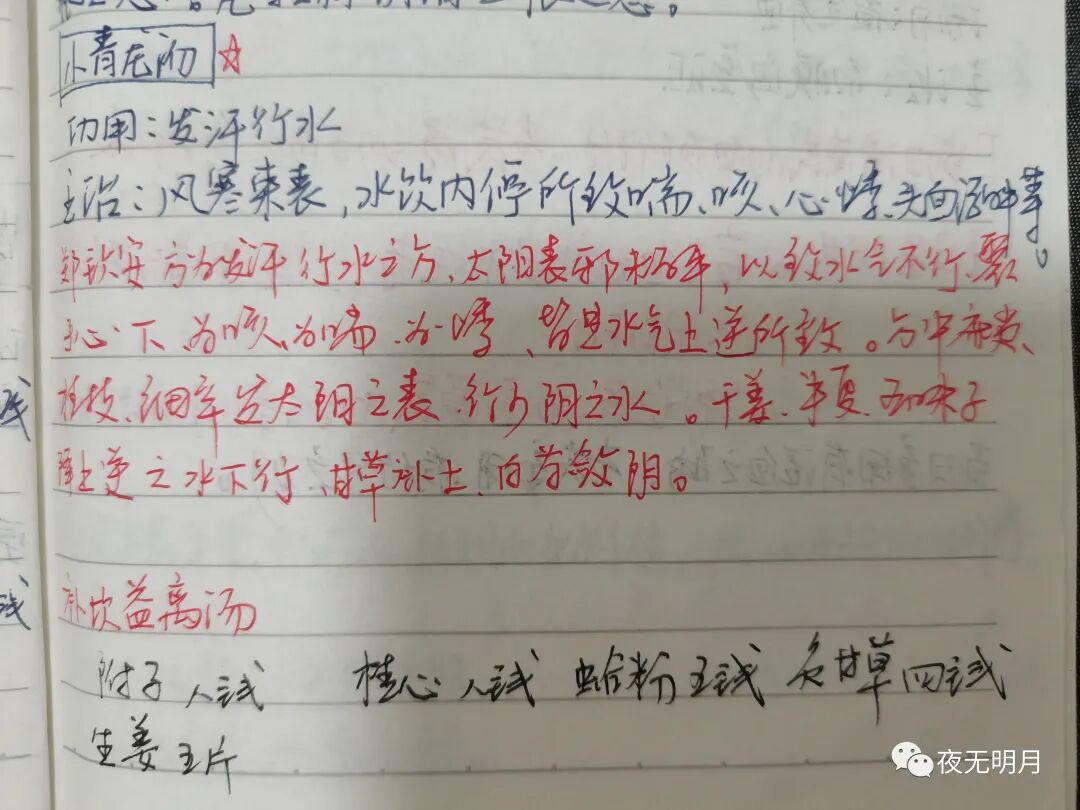 小青龙汤 ☆
功用：发汗行水
主治：风寒束表，水饮内停所致喘、咳、心悸、头面浮肿等。
郑钦安 方为发汗行水之方、太阳表邪未解，以致水气不行、聚
于心下、为咳、为喘、为悸、皆是水气上逆所致。方中麻黄、
桂枝、细辛发太阳之表、行少阴之水。干姜、半夏、五味子
降上逆之水下行、甘草补土、白芍敛阴。
补坎益离汤
附子 八钱 桂心 八钱 蛤粉 五钱 炙甘草 四钱
生姜 五片
钱
钱
夜无明月